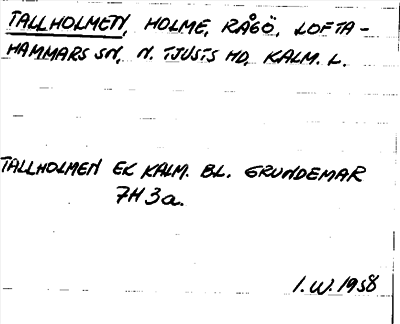 TALLHOLMEN, HOLME, RÅGÖ, LOFTA-
HAMMARS SN, N. TJUSTS HD, KALM. L.
TALLHOLMEN EK KALM. BL. GRUNDEMAR
7H 3a.
I.W. 1958